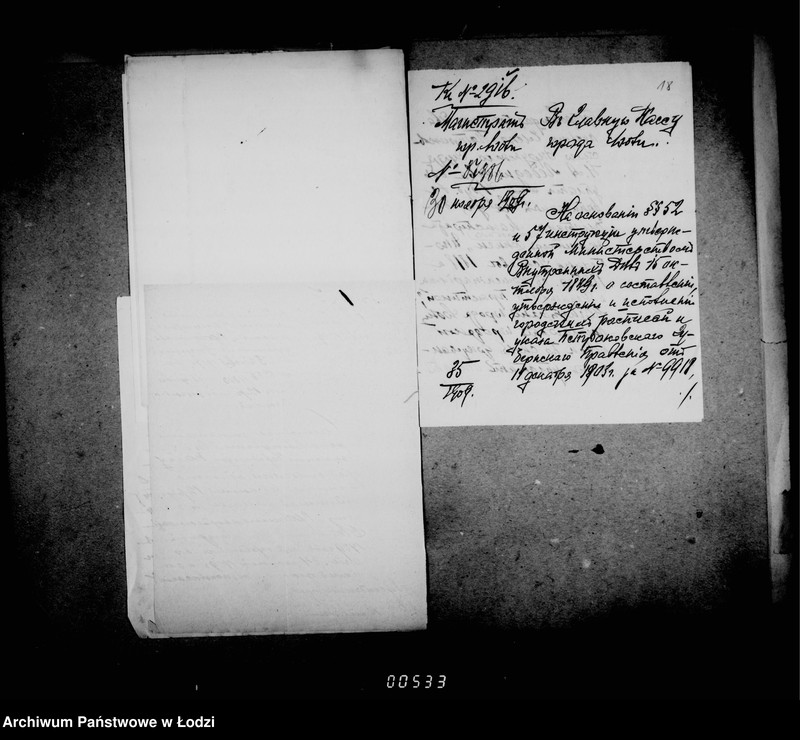 18
Къ № 2916.
Магистратъ
гор. Лодзи
№
30 ноября 1909 г.
Въ Главную Кассу
города Лодзи.
На основаніи §§ 52
и 57 инструкціи утверж-
денной Министерствомъ
Внутреннихъ Дѣлъ 15 ок-
тября г. о составленіи,
утвержденіи и исполненіи
городскихъ росписей и
указа Петроковскаго Гу-
бернскаго Правленія отъ
19 декабря 1903 г. за № 9918,
./.
35
1909.
00533
Archiwum Państwowe w Łodzi